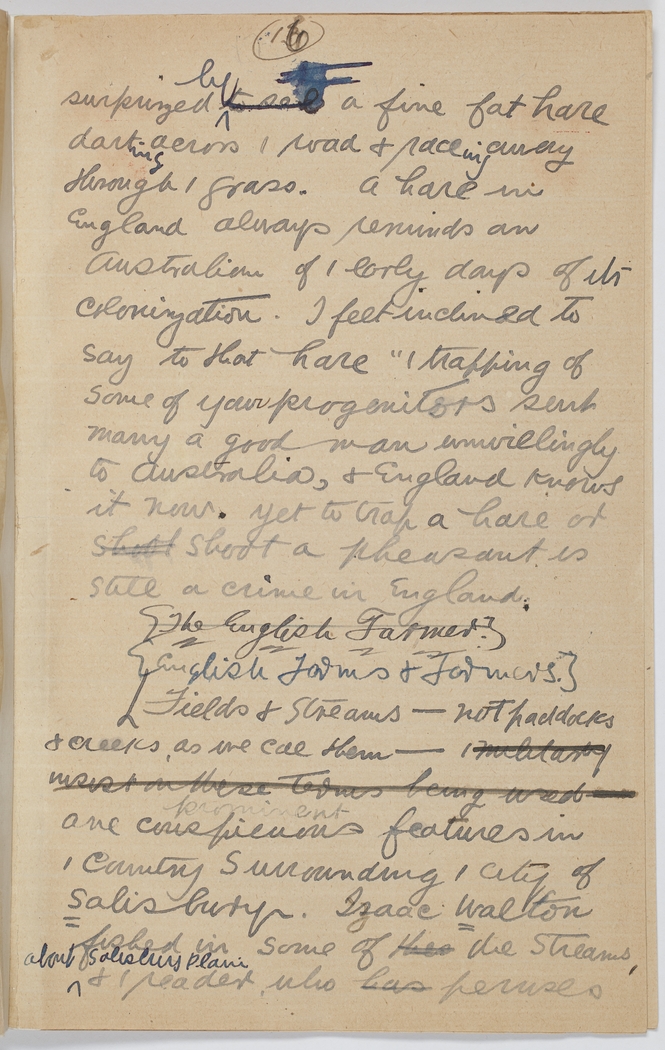 16
by
surprized to see a fine fat hare
darting across / road & racing away
through / grass. A hare in
England always reminds an
Australian of / early days of its
colonization. I feel inclined to
say to that hare "/ trapping of
some of your progenitors sent
many a good man unwillingly
to Australia, & England knows
it now. Yet to trap a hare or
shoot shoot a pheasant is
still a crime in England.
{The English Farmer.}
{English Farms & Farmers.}
Fields & Streams — not paddocks
& creeks, as we call them — / military
insist on these terms being used —
prominent
are conspicuous features in
/ Country Surrounding / City of
Salisbury. Izaac Walton
fished in some of the Streams,
about Salisbury Plain
& / reader, who has peruses